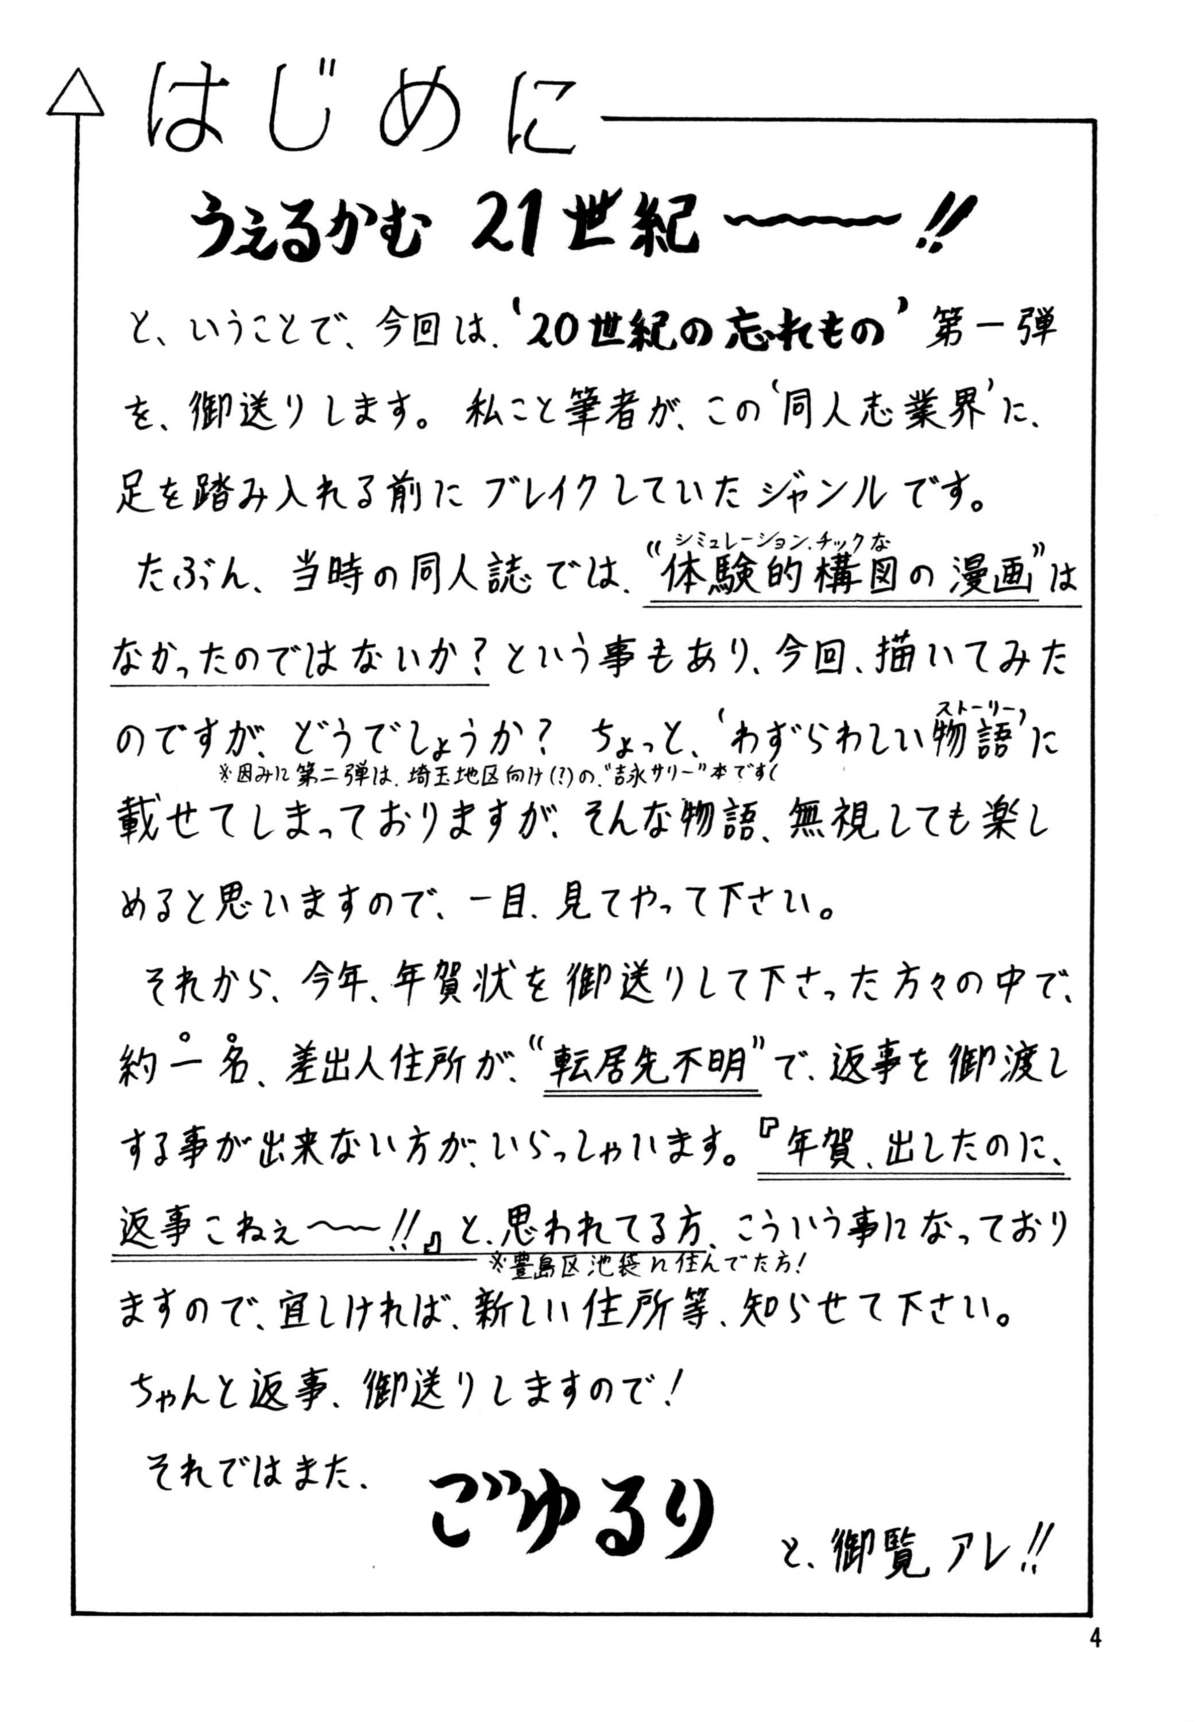 はじめに
うぇるかむ 21世紀〜〜〜!!
と、いうことで、今回は、‘20世紀の忘れもの’第一弾
を、御送りします。私こと筆者が、この‘同人志業界’に、
足を踏み入れる前にブレイクしていたジャンルです。
シミュレーション、チックな
たぶん、当時の同人誌では、“体験的構図の漫画”は
なかったのではないか？という事もあり、今回、描いてみた
ストーリー
のですが、どうでしょうか？ ちょっと、‘わずらわしい物語’に
※因みに第二弾は、埼玉地区向け(?)の、“吉永サリー”本です(
載せてしまっておりますが、そんな物語、無視しても楽し
めると思いますので、一目、見てやって下さい。
それから、今年、年賀状を御送りして下さった方々の中で、
約一名、差出人住所が、“転居先不明”で、返事を御渡し
する事が出来ない方が、いらっしゃいます。『年賀、出したのに、
返事こねぇ〜〜!!』と、思われてる方、こういう事になっており
※豊島区池袋に住んでた方！
ますので、宜しければ、新しい住所等、知らせて下さい。
ちゃんと返事、御送りしますので！
それではまた、
ごゆるり
と、御覧アレ!!
4